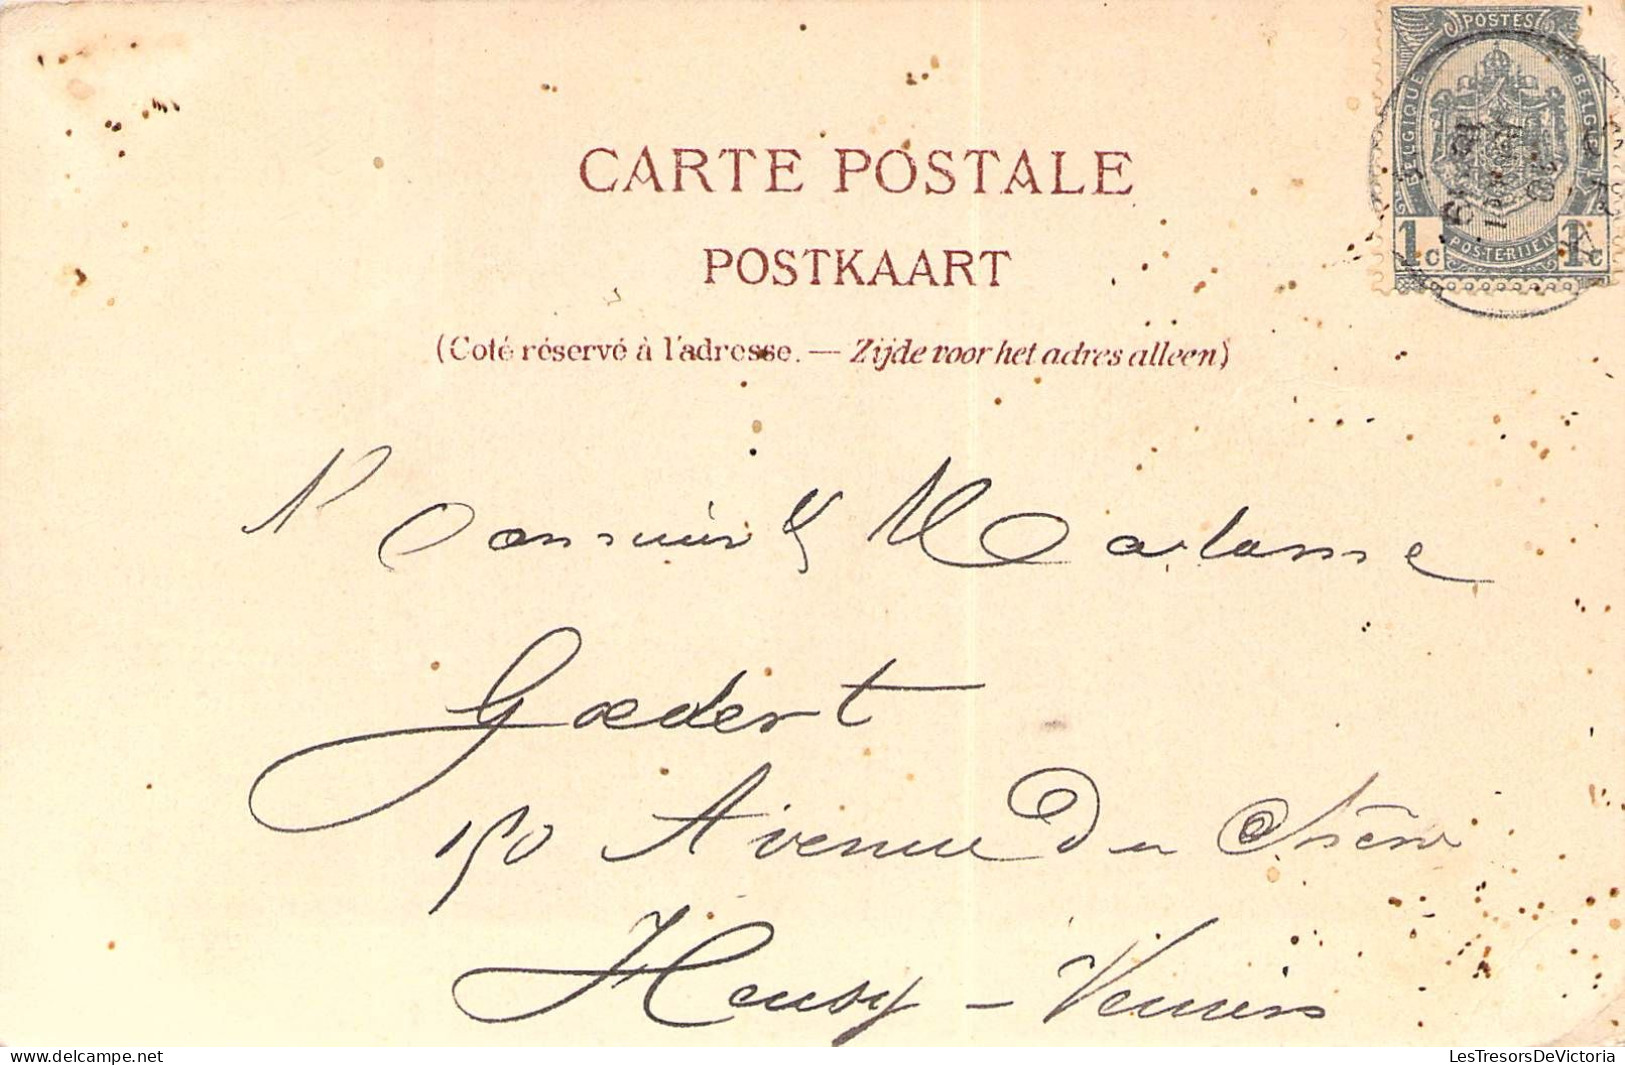 POSTES
BELGIQUE
BELGIË
1c POSTERIJEN 1c
CARTE POSTALE
POSTKAART
(Coté réservé à l'adresse. — Zijde voor het adres alleen)
Monsieur & Madame
Goedert
150 Avenue Du Chêne
Heusy - Verviers
delcampe.net
LesTresorsDeVictoria